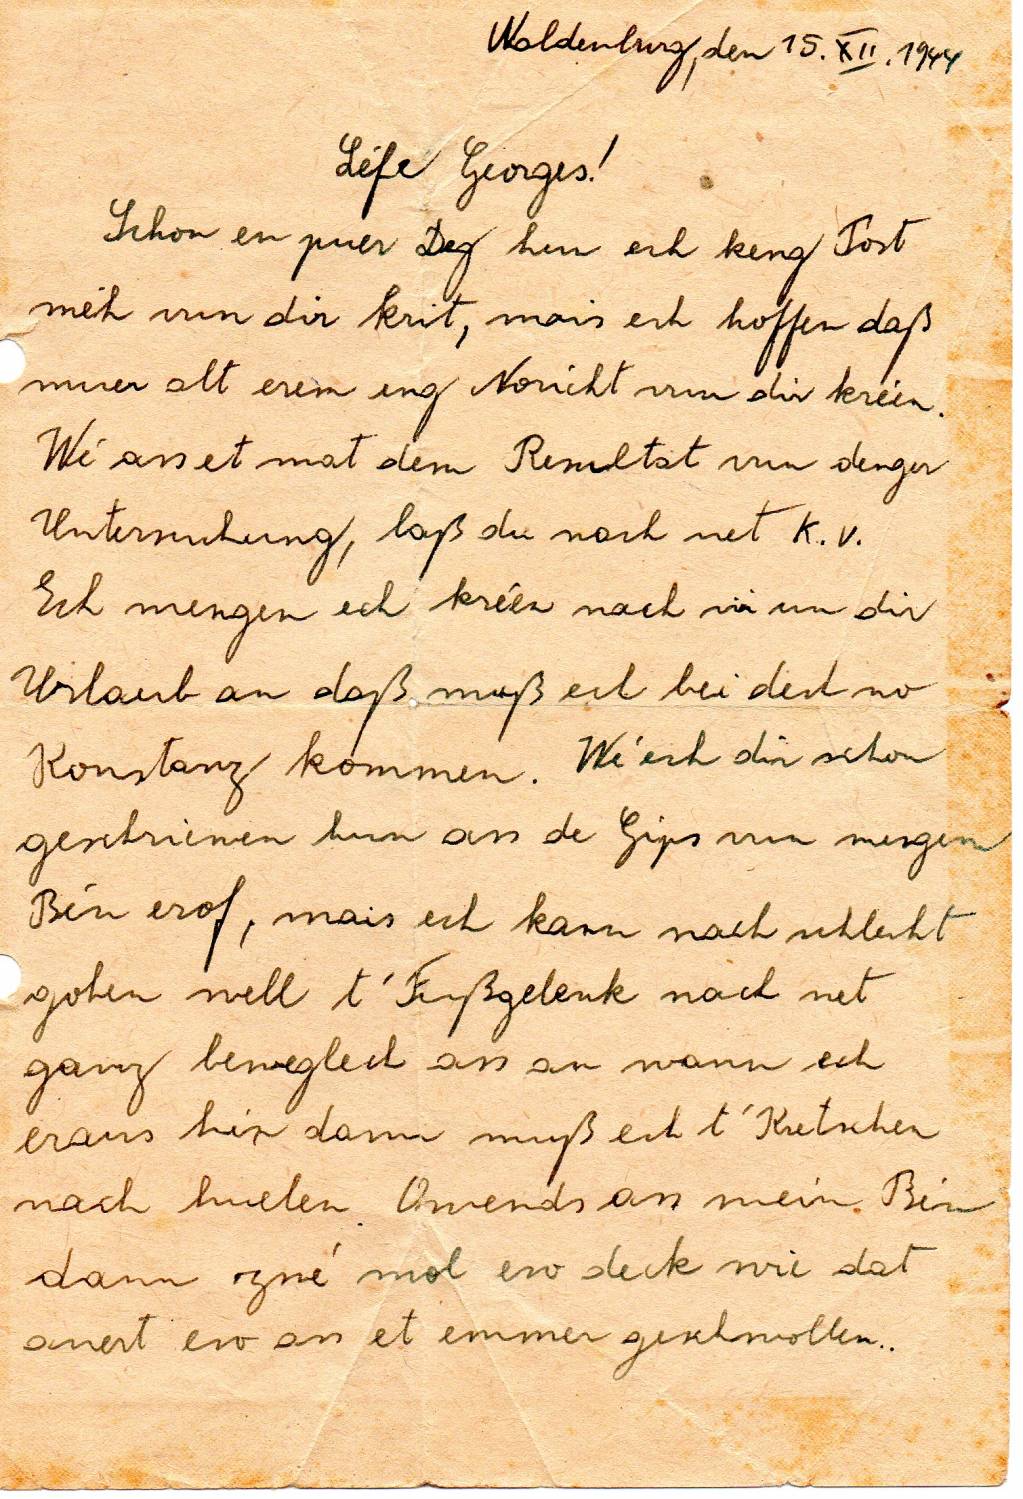 Waldenburg, den 15. XII. 1944
Léfe Georges!
Schon en puer Deg hun ech keng Post
méh vun dir krit, mais ech hoffen daß
muer alt erem eng Noricht vun dir kréien.
Wé ass et mat dem Resultat vun denger
Untersuchung, baß du noch net K.v.
Ech mengen ech kréien nach vir un dir
Urlaub an daß muß ech bei dech no
Konstanz kommen. Wé ech dir schon
geschriewen hun ass de Gips vun mengem
Bén erof, mais ech kann nach schlecht
gohen well t'Fußgelenk nach net
ganz beweglech ass an wann ech
eraus hin dann muß ech t'Kretschen
nach huelen. Owends ass mein Bén
dann zné mol ewo deck wie dat
anert ewo ass et emmer geschwollen..